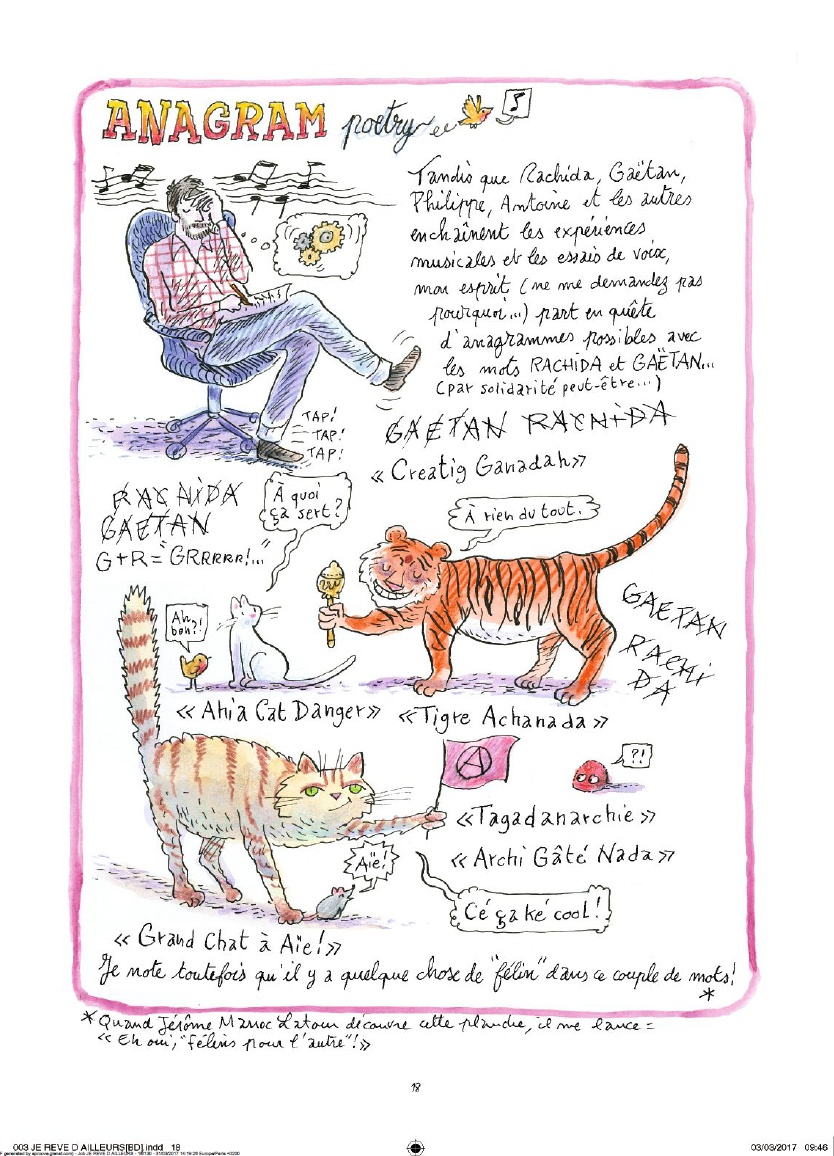 ANAGRAM poetry
Tandis que Rachida, Gaëtan,
Philippe, Antoine et les autres
enchaînent les expériences
musicales et les essais de voix,
mon esprit (ne me demandez pas
pourquoi...) part en quête
d'anagrammes possibles avec
les mots RACHIDA et GAËTAN...
(par solidarité peut-être...)
TAP!
TAP!
TAP!
GAËTAN RACHIDA
« Creatig Ganadah »
RACHIDA
GAËTAN
G+R = "GRRRRR!..."
À quoi
ça sert?
À rien du tout.
Ah
bon?!
GAETAN
RACHI
DA
« Ahia Cat Danger »
« Tigre Achanada »
A
?!
« Tagadanarchie »
« Archi Gâté Nada »
Aïe!
Cé ça ké cool!
« Grand Chat à Aïe! »
Je note toutefois qu'il y a quelque chose de "félin" dans ce couple de mots!
*
* Quand Jérôme Marroc Latour découvre cette planche, il me lance =
« Eh oui, "félins pour l'autre"! »
18
003 JE REVE D AILLEURS[BD].indd 18
03/03/2017 09:46